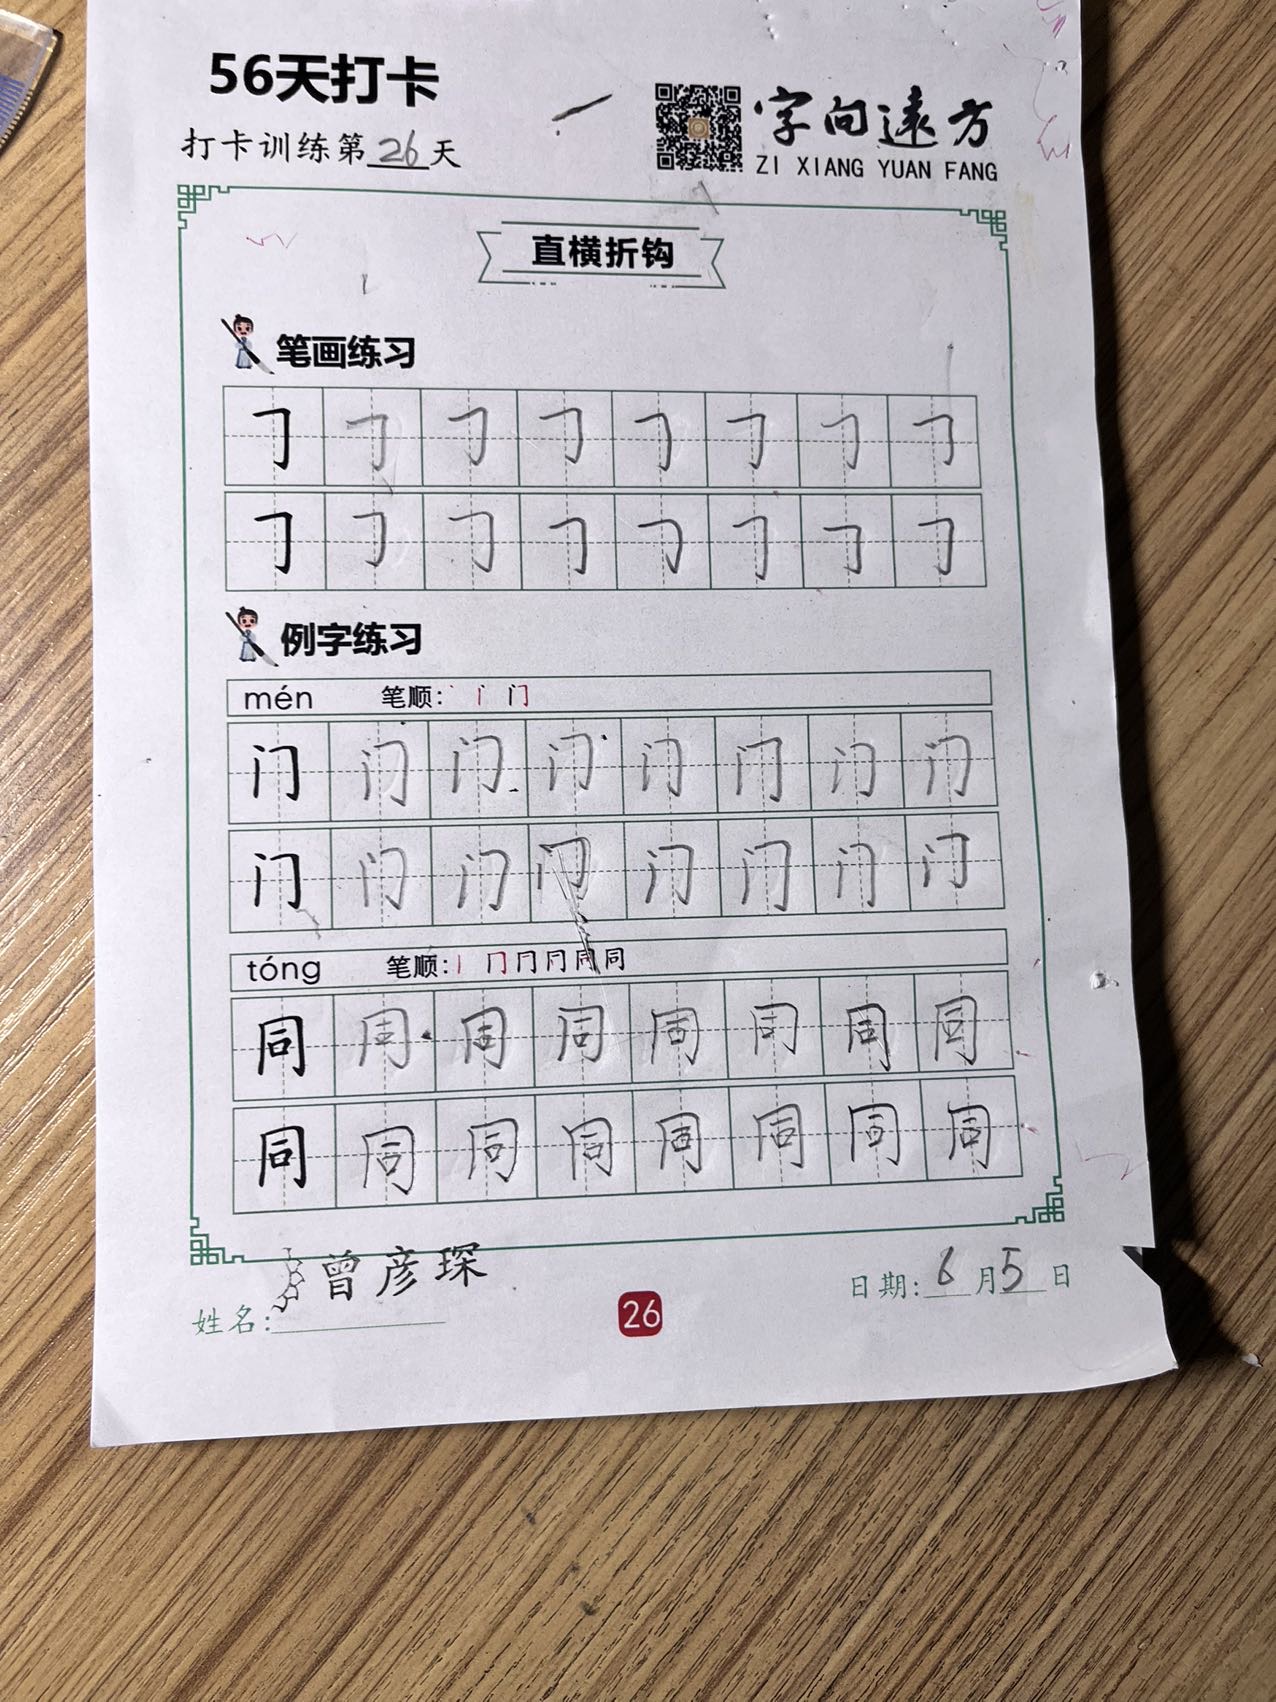 56天打卡
打卡训练第26天
字向远方
ZI XIANG YUAN FANG
直横折钩
笔画练习
㇆ ㇆ ㇆ ㇆ ㇆ ㇆ ㇆ ㇆
㇆ ㇆ ㇆ ㇆ ㇆ ㇆ ㇆ ㇆
例字练习
mén 笔顺：
门 门 门 门 门 门 门 门
门 门 门 门 门 门 门 门
tóng 笔顺：
同 同 同 同 同 同 同 同
同 同 同 同 同 同 同 同
姓名：曾彦琛
26
日期：6月5日